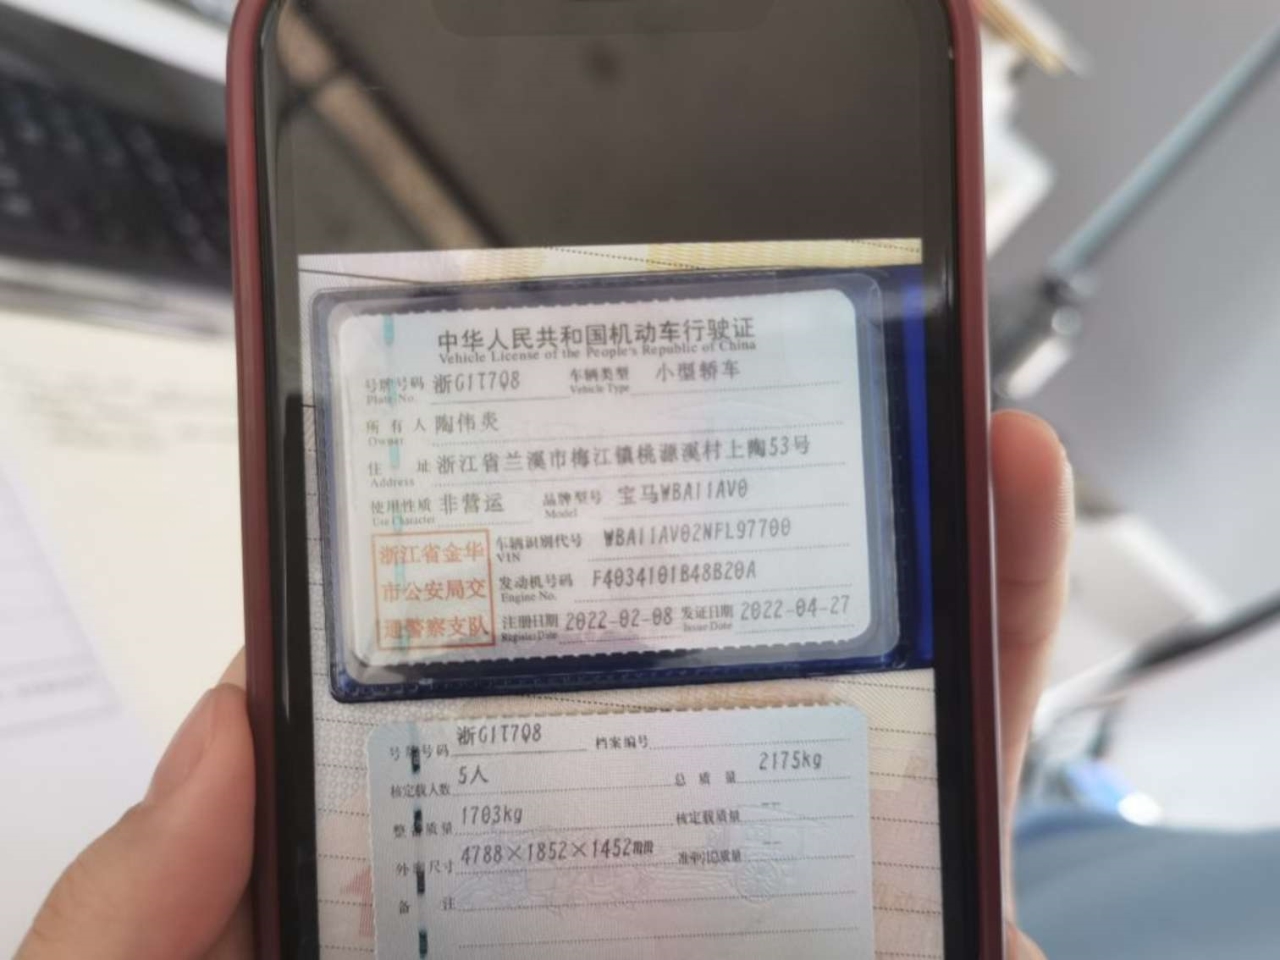 中华人民共和国机动车行驶证
Vehicle License of the People's Republic of China
号牌号码 浙G1T7Q8 车辆类型 小型轿车
Plate No. Vehicle Type
所有人 陶伟炎
Owner
住址 浙江省兰溪市梅江镇桃源溪村上陶53号
Address
使用性质 非营运 品牌型号 宝马WBA11AV0
Use Character Model
浙江省金华
市公安局交
通警察支队
车辆识别代号 WBA11AV02NFL97700
VIN
发动机号码 F4034101B48B20A
Engine No.
注册日期 2022-02-08 发证日期 2022-04-27
Register Date Issue Date
号牌号码 浙G1T7Q8 档案编号
核定载人数 5人 总质量 2175kg
整备质量 1703kg 核定载质量 --
外廓尺寸 4788×1852×1452mm 准牵引总质量 --
备注